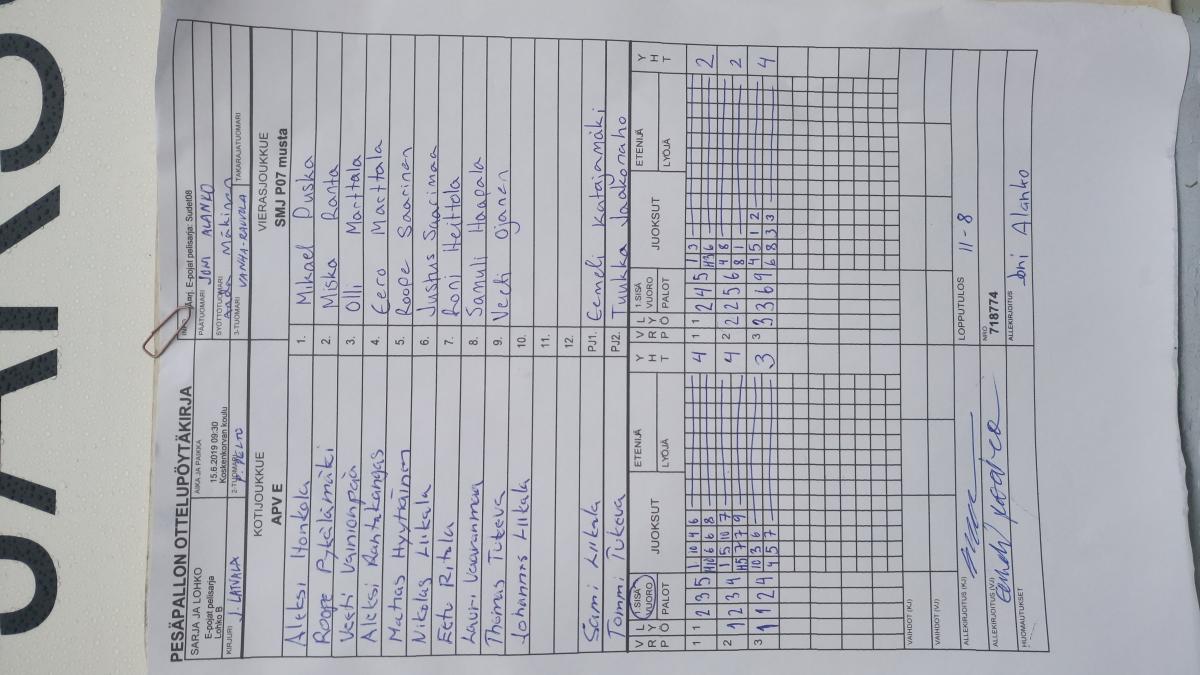 PESÄPALLON OTTELUPÖYTÄKIRJA
SARJA JA LOHKO
E-pojat pelisarja
Lohko B
AIKA JA PAIKKA
15.6.2019 09:30
Koskenkorvan koulu
INFO Anj. E-pojat pelisarja: Sudet08
PÄÄTUOMARI JONI ALANKO
SYÖTTÖTUOMARI Mäkinen
KIRJURI J. LATVALA
2-TUOMARI
3-TUOMARI VANHA-RAUVOLA
TAKARAJATUOMARI
KOTIJOUKKUE
APV E
VIERASJOUKKUE
SMJ P07 musta
Aleksi Honkola 1. Mikael Puska
Roope Pykälämäki 2. Miska Ranta
Veeti Vainionpää 3. Olli Marttala
Aleksi Rantakangas 4. Eero Marttala
Matias Hyytiäinen 5. Roope Saarinen
Nikolas Liikala 6. Justus Saarimaa
Eetu Ritola 7. Roni Heittola
Lauri Vaaranmaa 8. Samuli Haapala
Thomas Tukeva 9. Veeti Ojanen
Johannes Liikala 10.
11.
12.
Sami Liikala PJ1. Eemeli Katajamäki
Tommi Tukeva PJ2. Tuukka Jaakonaho
V R Ö L Y P 1.SISÄ VUORO PALOT JUOKSUT ETENIJÄ LYÖJÄ Y H T
V R Ö L Y P 1.SISÄ VUORO PALOT JUOKSUT ETENIJÄ LYÖJÄ Y H T
1 1 2 3 5 1 10 4 6 4
H10 6 6 8
1 1 2 4 5 1 3 2
H3 6
2 1 2 3 4 1 5 10 7 4
H5 7 7 9
2 2 2 5 6 4 8 2
8 1
3 1 1 2 4 10 3 6 3
4 5 7
3 3 3 6 9 4 5 1 2 4
6 8 3 3
VAIHDOT (KJ)
VAIHDOT (VJ)
ALLEKIRJOITUS (KJ)
LOPPUTULOS 11-8
ALLEKIRJOITUS (VJ)
NRO
718774
HUOMAUTUKSET
ALLEKIRJOITUS Joni Alanko